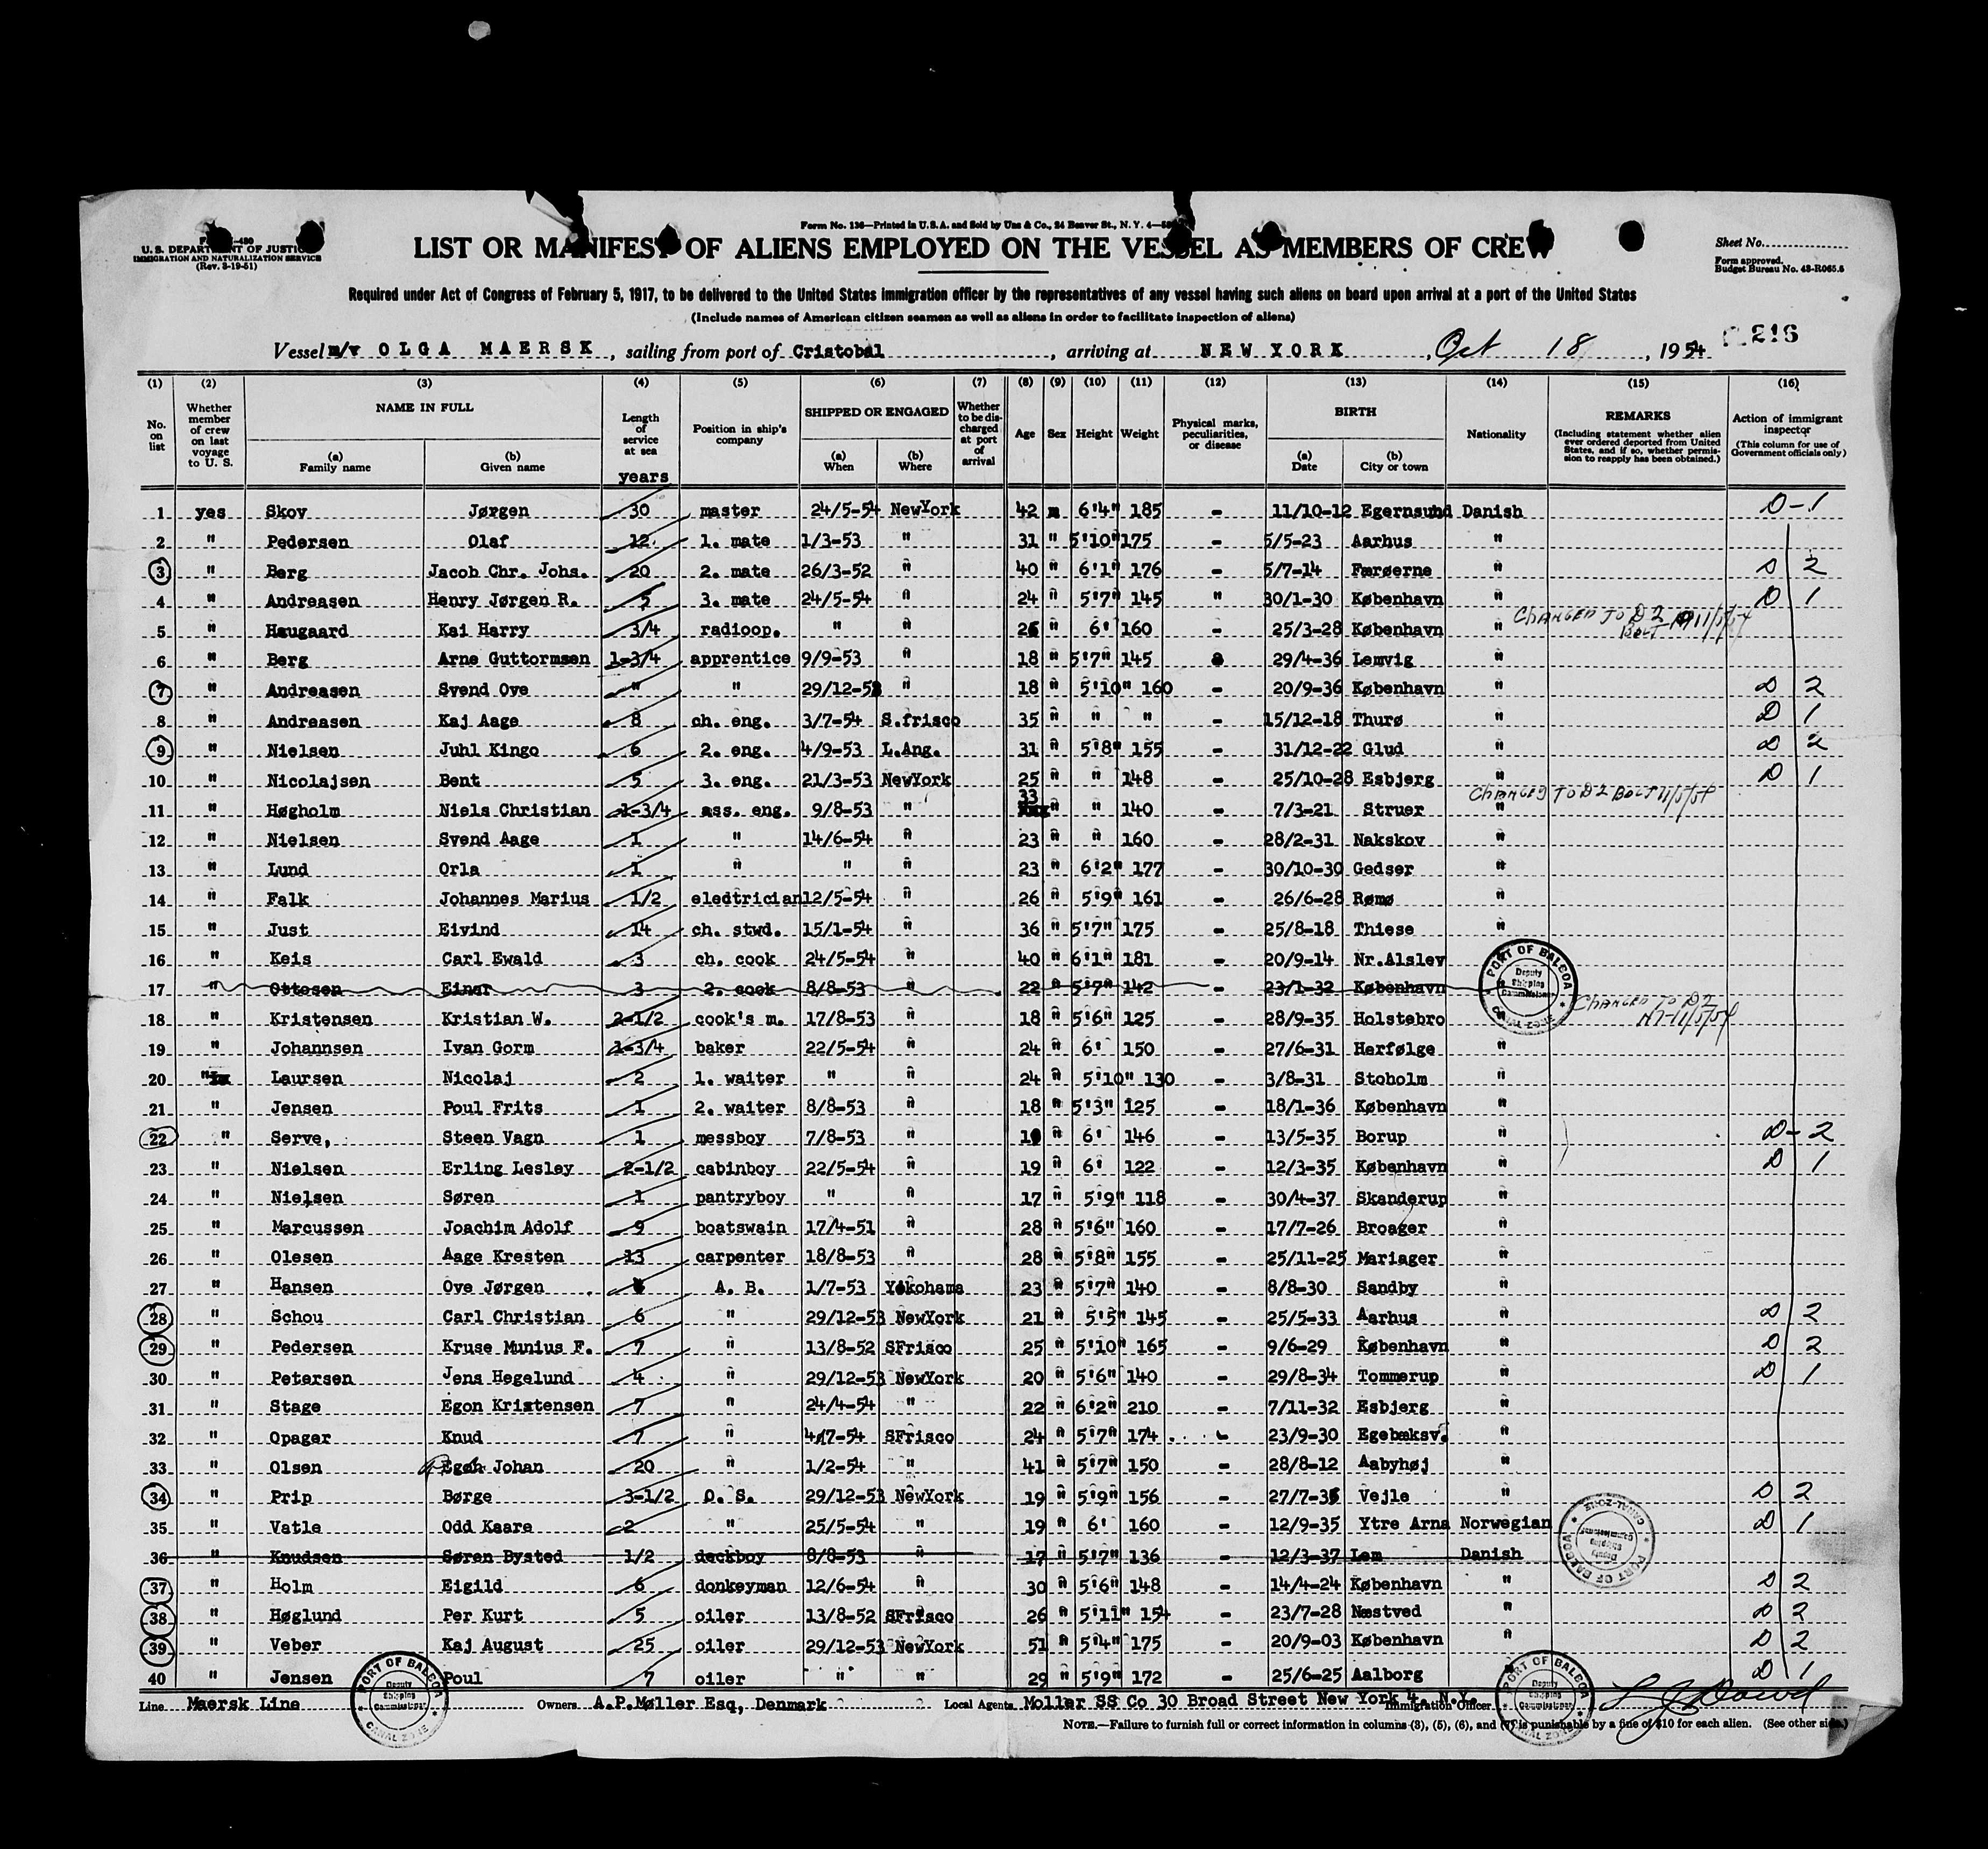 Form No. 136—Printed in U.S.A. and Sold by Unz & Co., 24 Beaver St., N. Y. 4—
U. S. DEPARTMENT OF JUSTICE
IMMIGRATION AND NATURALIZATION SERVICE
(Rev. 3-19-51)
LIST OR MANIFEST OF ALIENS EMPLOYED ON THE VESSEL AS MEMBERS OF CREW
Sheet No.
Form approved.
Budget Bureau No. 43-R065.
Required under Act of Congress of February 5, 1917, to be delivered to the United States immigration officer by the representatives of any vessel having such aliens on board upon arrival at a port of the United States
(Include names of American citizen seamen as well as aliens in order to facilitate inspection of aliens)
216
Vessel m/v OLGA MAERSK, sailing from port of Cristobal, arriving at NEW YORK, Oct 18, 1954
(1) (2) (3) (4) (5) (6) (7) (8) (9) (10) (11) (12) (13) (14) (15) (16)
No. on list
Whether member of crew on last voyage to U. S.
NAME IN FULL
(a) Family name
(b) Given name
Length of service at sea
years
Position in ship's company
SHIPPED OR ENGAGED
(a) When
(b) Where
Whether to be discharged at port of arrival
Age
Sex
Height
Weight
Physical marks, peculiarities, or disease
BIRTH
(a) Date
(b) City or town
Nationality
REMARKS
(Including statement whether alien ever ordered deported from United States, and if so, whether permission to reapply has been obtained.)
Action of immigrant inspector
(This column for use of Government officials only)
1 yes Skov Jørgen 30 master 24/5-54 NewYork 42 m 6'4" 185 - 11/10-12 Egernsund Danish D-1
2 " Pedersen Olaf 12 1. mate 1/3-53 " 31 " 5'10" 175 - 5/5-23 Aarhus "
3 " Berg Jacob Chr. Johs. 20 2. mate 26/3-52 " 40 " 6'1" 176 - 5/7-14 Færøerne " D 2
4 " Andreasen Henry Jørgen R. 5 3. mate 24/5-54 " 24 " 5'7" 145 " 30/1-30 København " D 1
CHANGED TO D2
5 " Haugaard Kai Harry 3/4 radioop. " " 26 " 6' 160 - 25/3-28 København "
6 " Berg Arne Guttormsen 1-3/4 apprentice 9/9-53 " 18 " 5'7" 145 29/4-36 Lemvig "
7 " Andreasen Svend Ove " " 29/12-53 " 18 " 5'10" 160 - 20/9-36 København " D 2
8 " Andreasen Kaj Aage 8 ch. eng. 3/7-54 S.frisco 35 " " " - 15/12-18 Thurø " D 1
9 " Nielsen Juhl Kingo 6 2. eng. 4/9-53 L.Ang. 31 " 5'8" 155 - 31/12-22 Glud " D 2
10 " Nicolajsen Bent 5 3. eng. 21/3-53 NewYork 25 " " 148 - 25/10-28 Esbjerg " D 1
CHANGED TO D2
11 " Høgholm Niels Christian 1-3/4 ass. eng. 9/8-53 " 33 " " 140 - 7/3-21 Struer "
12 " Nielsen Svend Aage 1 " 14/6-54 " 23 " " 160 - 28/2-31 Nakskov "
13 " Lund Orla 1 " " " 23 " 6'2" 177 - 30/10-30 Gedser "
14 " Falk Johannes Marius 1/2 eledtrician 12/5-54 " 26 " 5'9" 161 - 26/6-28 Rømø "
15 " Just Eivind 14 ch. stwd. 15/1-54 " 36 " 5'7" 175 - 25/8-18 Thiese "
16 " Keis Carl Ewald 3 ch. cook 24/5-54 " 40 " 6'1" 181 - 20/9-14 Nr.Alslev
17 " Ottosen Einar 3 2. cook 8/8-53 " 22 " 5'7" 142 - 23/1-32 København
PORT OF BALBOA Deputy Shipping Commissioner CANAL ZONE
CHANGED TO D2
18 " Kristensen Kristian W. 2-1/2 cook's m. 17/8-53 " 18 " 5'6" 125 - 28/9-35 Holstebro
19 " Johannsen Ivan Gorm 1-3/4 baker 22/5-54 " 24 " 6' 150 - 27/6-31 Herfølge "
20 " Laursen Nicolaj 2 1. waiter " " 24 " 5'10" 130 - 3/8-31 Stoholm "
21 " Jensen Poul Frits 1 2. waiter 8/8-53 " 18 " 5'3" 125 - 18/1-36 København "
22 " Serve, Steen Vagn 1 messboy 7/8-53 " " 6' 146 - 13/5-35 Borup " D-2
23 " Nielsen Erling Lesley 2-1/2 cabinboy 22/5-54 " 19 " 6' 122 - 12/3-35 København " D 1
24 " Nielsen Søren 1 pantryboy " " 17 " 5'9" 118 - 30/4-37 Skanderup "
25 " Marcussen Joachim Adolf 9 boatswain 17/4-51 " 28 " 5'6" 160 - 17/7-26 Broager "
26 " Olesen Aage Kresten 13 carpenter 18/8-53 " 28 " 5'8" 155 - 25/11-25 Mariager "
27 " Hansen Ove Jørgen A. B. 1/7-53 Yokohama 23 " 5'7" 140 - 8/8-30 Sandby "
28 " Schou Carl Christian 6 " 29/12-53 NewYork 21 " 5'5" 145 - 25/5-33 Aarhus " D 2
29 " Pedersen Kruse Munius F. 7 " 13/8-52 SFrisco 25 " 5'10" 165 - 9/6-29 København " D 2
30 " Petersen Jens Hegelund 4 " 29/12-53 NewYork 20 " 5'6" 140 - 29/8-34 Tommerup " D 1
31 " Stage Egon Kristensen 7 " 24/4-54 " 22 " 6'2" 210 - 7/11-32 Esbjerg "
32 " Opager Knud 7 " 4/7-54 SFrisco 24 " 5'7" 174 - 23/9-30 Egebæksv. "
33 " Olsen Egon Johan 20 " 1/2-54 " 41 " 5'7" 150 - 28/8-12 Aabyhøj "
34 " Prip Børge 3-1/2 O. S. 29/12-53 NewYork 19 " 5'9" 156 - 27/7-35 Vejle " D 2
35 " Vatle Odd Kaare 2 " 25/5-54 " 19 " 6' 160 - 12/9-35 Ytre Arna Norwegian D 1
PORT OF BALBOA Deputy Shipping Commissioner CANAL ZONE
36 " Knudsen Søren Bysted 1/2 deckboy 8/8-53 " 17 " 5'7" 136 - 12/3-37 Lem Danish
37 " Holm Eigild 6 donkeyman 12/6-54 " 30 " 5'6" 148 - 14/4-24 København " D 2
38 " Høglund Per Kurt 5 oiler 13/8-52 SFrisco 26 " 5'11" 154 - 23/7-28 Næstved " D 2
39 " Veber Kaj August 25 oiler 29/12-53 NewYork 51 " 5'4" 175 - 20/9-03 København " D 2
40 " Jensen Poul 7 oiler " " 29 " 5'9" 172 - 25/6-25 Aalborg " D 1
Line Maersk Line Owners A.P.Møller Esq, Denmark Local Agents Moller SS Co 30 Broad Street New York 4, N.Y. Immigration Officer
PORT OF BALBOA Deputy Shipping Commissioner CANAL ZONE
PORT OF BALBOA Deputy Shipping Commissioner CANAL ZONE
NOTE.—Failure to furnish full or correct information in columns (3), (5), (6), and (7) is punishable by a fine of $10 for each alien. (See other side.)